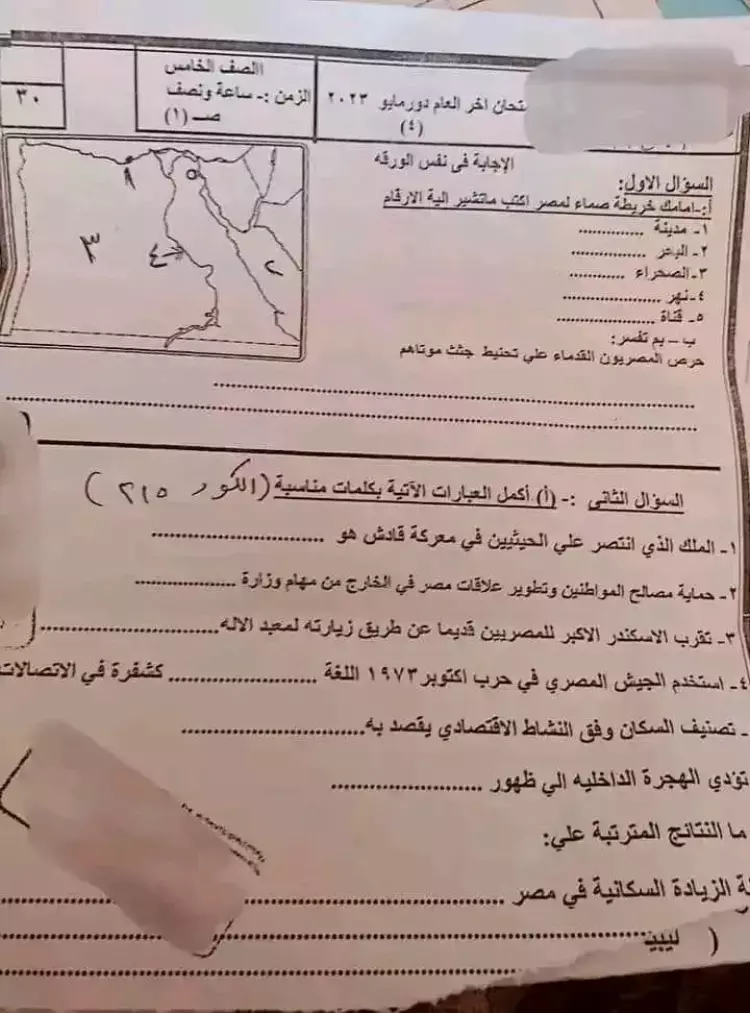 الصف الخامس
الزمن :- ساعة ونصف
صـ (١)
٣٠
متحان اخر العام دورمايو ٢٠٢٣
(٤)
الإجابة فى نفس الورقه
السؤال الاول:
أ:-امامك خريطة صماء لمصر اكتب ماتشير الية الارقام
١- مدينة ..............
٢- البحر ................
٣-الصحراء ............
٤-نهر .....................
٥- قناة .....................
ب – بم تفسر:
حرص المصريون القدماء علي تحنيط جثث موتاهم
٣
٤
٢
السؤال الثانى :- (أ) أكمل العبارات الآتية بكلمات مناسبة (
٢١٥ )
١- الملك الذي انتصر علي الحيثيين في معركة قادش هو ..............................
٢- حماية مصالح المواطنين وتطوير علاقات مصر في الخارج من مهام وزارة ..................
٣- تقرب الاسكندر الاكبر للمصريين قديما عن طريق زيارته لمعبد الاله..............................
٤- استخدم الجيش المصري في حرب اكتوبر١٩٧٣ اللغة ......................... كشفرة في الاتصالات
- تصنيف السكان وفق النشاط الاقتصادي يقصد به..............................
تؤدي الهجرة الداخليه الي ظهور .........................
ما النتائج المترتبة علي:
ة الزيادة السكانية في مصر ..............................
(